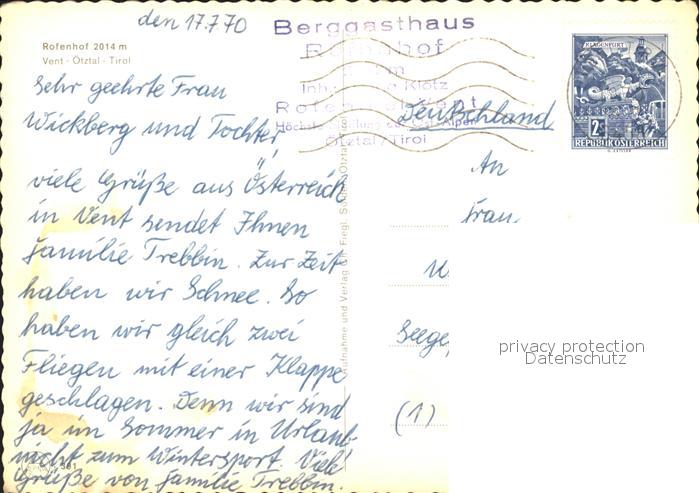 den 17.7.70
Rofenhof 2014 m
Vent - Ötztal - Tirol
Sehr geehrte Frau
Wickberg und Tochter,
viele Grüße aus Österreich
in Vent sendet Ihnen
Familie Trebbin. Zur Zeit
haben wir Schnee. So
haben wir gleich zwei
Fliegen mit einer Klappe
geschlagen. Denn wir sind
ja im Sommer in Urlaub
nicht zum Wintersport. Viele
Grüße von Familie Trebbin.
Aufnahme und Verlag
Berggasthaus
Rofenhof
Klotz
Ötztal/Tirol
KLAGENFURT
2
REPUBLIK ÖSTERREICH
Deutschland
An
Frau
(1)
privacy protection
Datenschutz